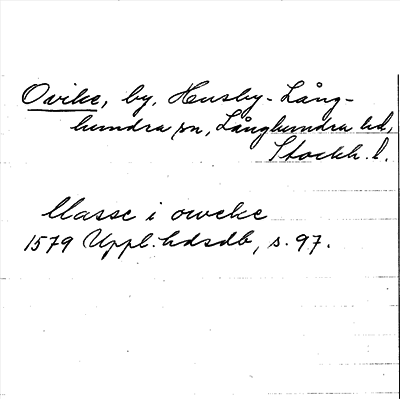 Ovike, by, Husby-Lång-
hundra sn, Långhundra hd,
Stockh. l.
Masse i oweke
1579 Uppl. hdsdb, s. 97.